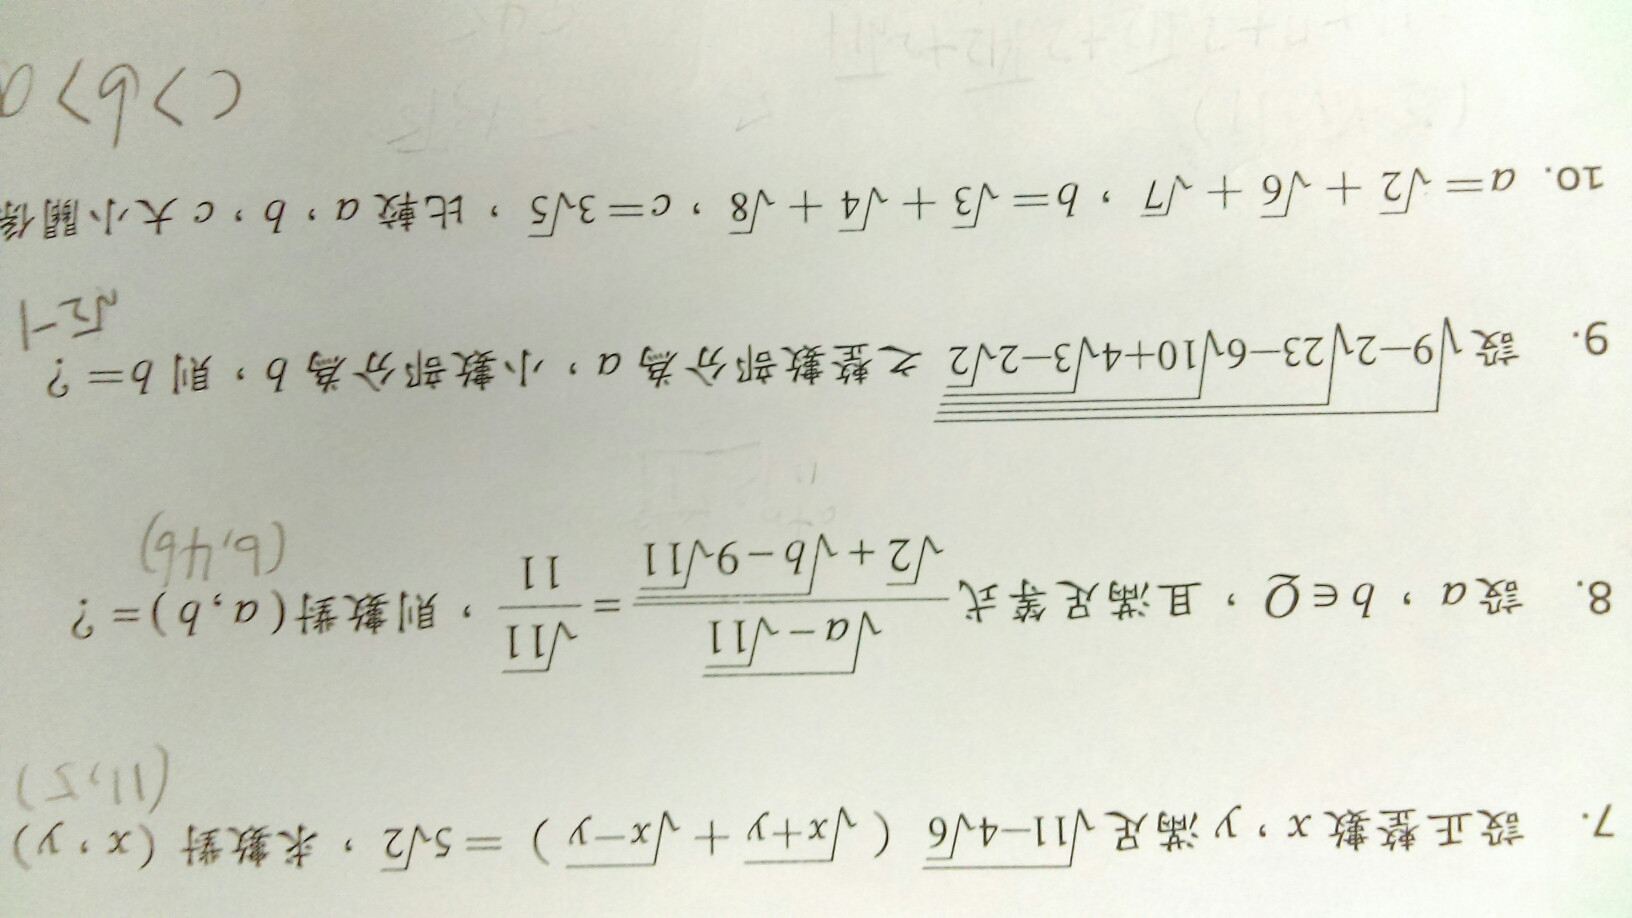 7. 設正整數 x，y 滿足 √(11−4√6) (√(x+y) + √(x−y)) = 5√2，求數對 (x，y)
(11,5)
8. 設 a，b∈Q，且滿足等式 √(a−√11) / (√2+√(b−9√11)) = √11/11，則數對 (a,b)=?
(6,46)
9. 設 √(9−2√(23−6√(10+4√(3−2√2)))) 之整數部分為 a，小數部分為 b，則 b=?
√2−1
10. a=√2+√6+√7，b=√3+√4+√8，c=3√5，比較 a，b，c 大小關係
c>b>a